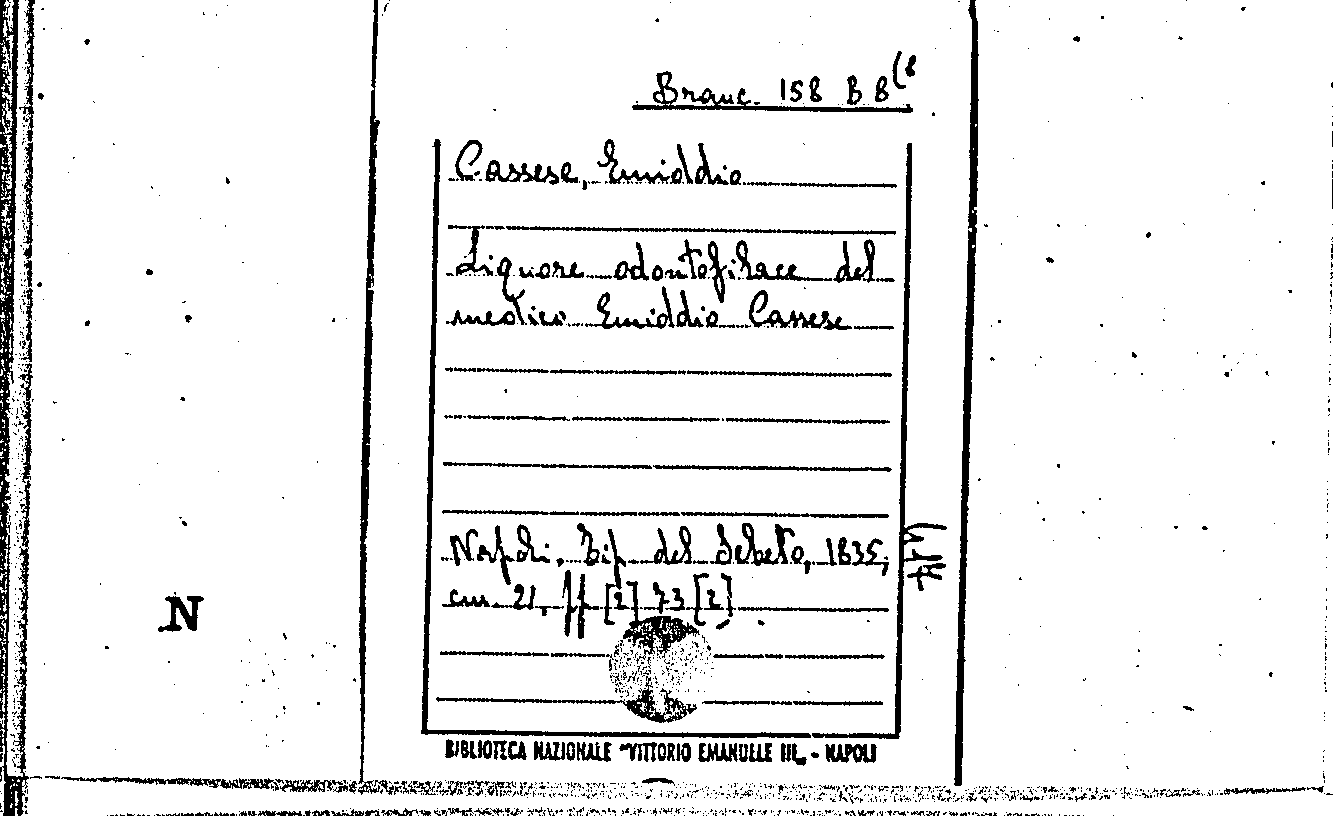 Branc. 158 B 8(8
Cassese, Emiddio
Liquore odontofilace del
medico Emiddio Cassese
Napoli, Tip. del Sebeto, 1835,
cm. 21, pp [2] 73 [2]
N
BIBLIOTECA NAZIONALE "VITTORIO EMANUELE III„ - NAPOLI